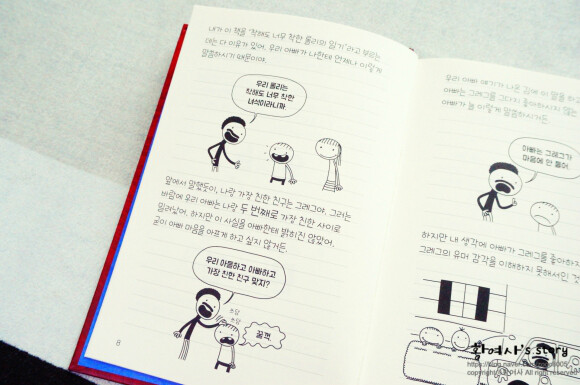 내가 이 책을 '착해도 너무 착한 롤리의 일기'라고 부르는
데는 다 이유가 있어. 우리 아빠가 나한테 언제나 이렇게
말씀하시기 때문이야.
우리 롤리는
착해도 너무 착한
녀석이라니까
앞에서 말했듯이, 나랑 가장 친한 친구는 그레그야. 그러는
바람에 우리 아빠는 나랑 두 번째로 가장 친한 사이로
밀려났어. 하지만 이 사실을 아빠한테 밝히진 않았어.
굳이 아빠 마음을 아프게 하고 싶지 않거든.
우리 아들하고 아빠하고
가장 친한 친구 맞지?
쓰담
쓰담
꿀꺽
8
우리 아빠 얘기가 나온 김에 이 말을 하고
아빠는 그레그를 그다지 좋아하시지 않는
아빠가 늘 이렇게 말씀하시거든.
아빠는 그레그가
마음에 안 들어
하지만 내 생각에 아빠가 그레그를 좋아하지
그레그의 유머 감각을 이해하지 못해서인 것
황여사's story